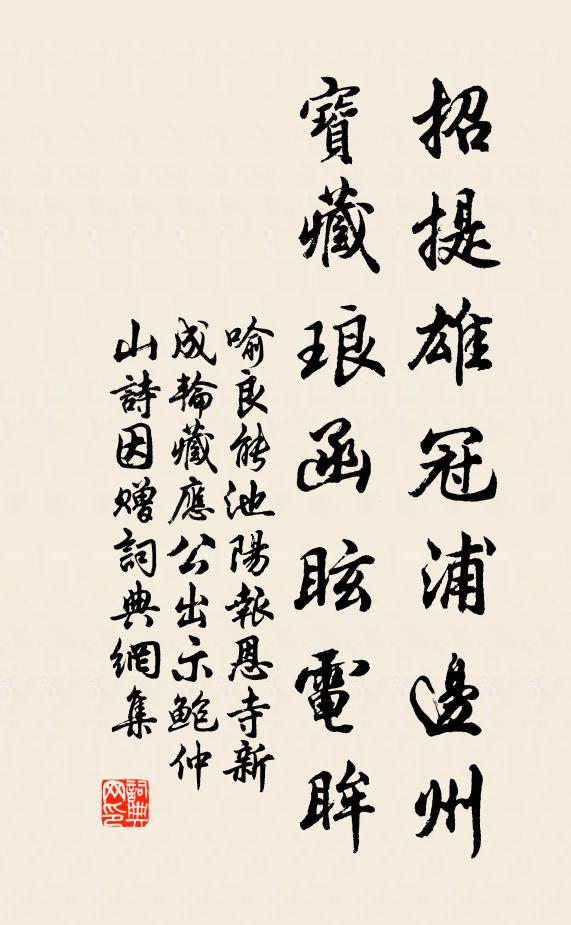 招提雄冠浦邊州
寶藏琅函眩電眸
喻良能池陽報恩寺新
成輪藏應公出示鮑仲
山詩因贈詞典網集
詞典網印